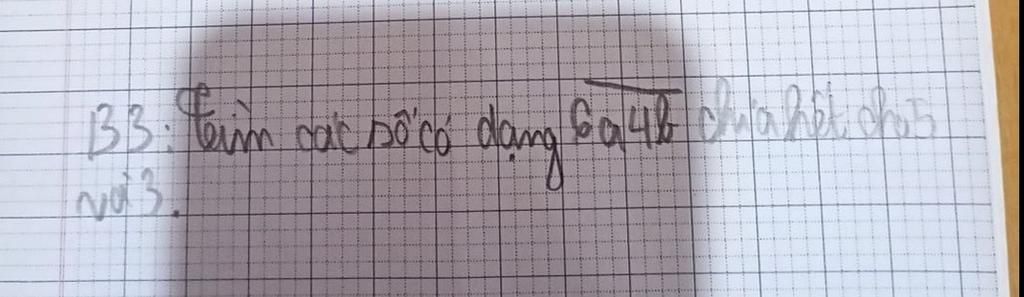 B3: Tìm các số có dạng 6a4b chia hết cho 5
và 3.